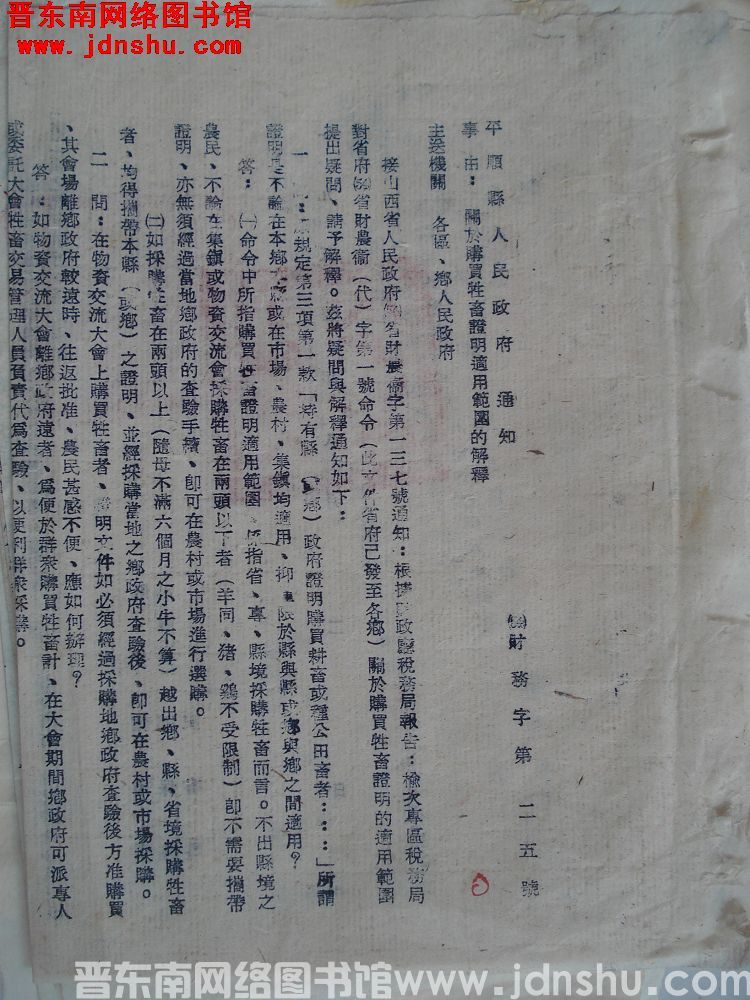 晋东南网络图书馆
www.jdnshu.com
平順縣人民政府通知
財務字第二五號
事由：關於購買牲畜證明適用範圍的解釋
主送機關 各區、鄉人民政府
接山西省人民政府省財農衛字第一三七號通知：根據政廳稅務局報告：榆次專區稅務局
對省府省財農衛（代）字第一號命令（此文件省府已發至各鄉）關於購買牲畜證明的適用範圍
提出疑問、請予解釋。茲將疑問與解釋通知如下：
一 ：規定第三項第一款「持有縣（鄉）政府證明購買耕畜或種公田畜者………」所謂
證明是不論在本鄉本縣或在市場、農村、集鎮均適用、抑限於縣與縣或鄉與鄉之間適用？
答：㈠命令中所指購買牲畜證明適用範圍、係指省、專、縣境採購牲畜而言。不出縣境之
農民、不論在集鎮或物資交流會採購牲畜在兩頭以下者（羊同、猪、鷄不受限制）卽不需要攜帶
證明、亦無須經過當地鄉政府的查驗手續、卽可在農村或市場進行選購。
㈡如採購牲畜在兩頭以上（隨母不滿六個月之小牛不算）越出鄉、縣、省境採購牲畜
者、均得攜帶本縣（或鄉）之證明、並經採購當地之鄉政府查驗後、卽可在農村或市場採購。
二 問：在物資交流大會上購買牲畜者、證明文件如必須經過採購地鄉政府查驗後方准購買
、其會場離鄉政府較遠時、往返批准、農民甚感不便、應如何辦理？
答：如物資交流大會離鄉政府遠者、爲便於群衆購買牲畜計、在大會期間鄉政府可派專人
或委託大會牲畜交易管理人員負責代爲查驗、以便利群衆採購。
晋东南网络图书馆www.jdnshu.com